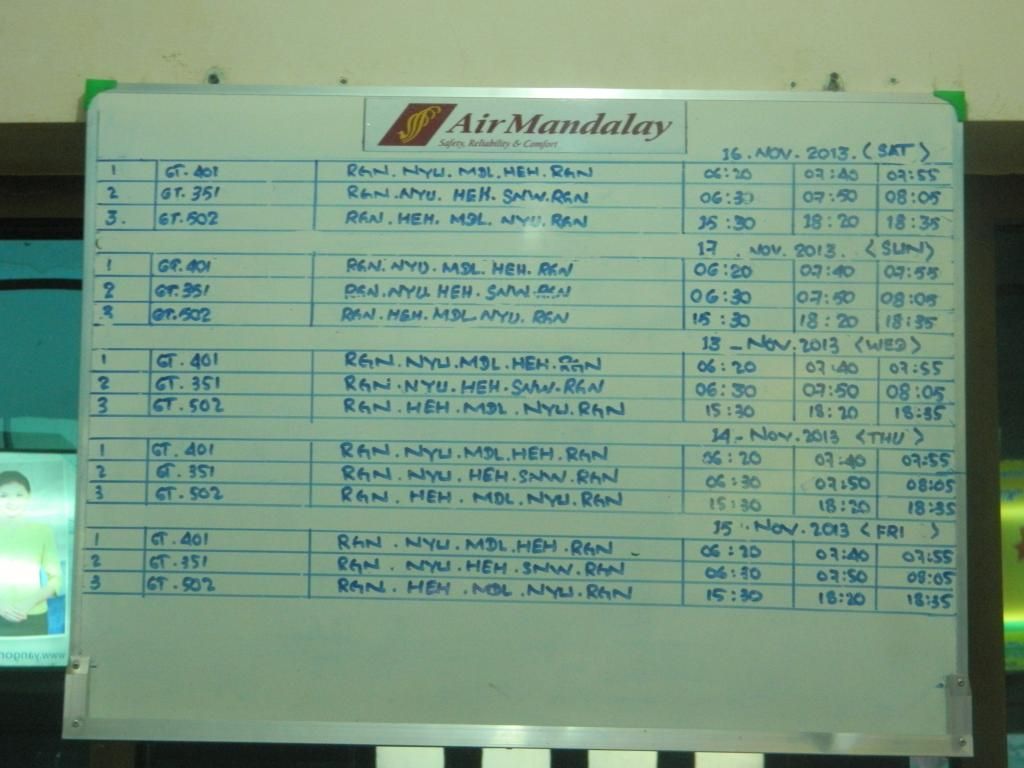 Air Mandalay
Safety, Reliability & Comfort
16. NOV. 2013. (SAT)
1 GT. 401 RGN. NYU. MDL. HEH. RGN 06:20 07:40 07:55
2 GT. 351 RGN. NYU. HEH. SNW. RGN 06:30 07:50 08:05
3. GT. 502 RGN. HEH. MDL. NYU. RGN 15:30 18:20 18:35
17. NOV. 2013. (SUN)
1 GT. 401 RGN. NYU. MDL. HEH. RGN 06:20 07:40 07:55
2 GT. 351 RGN. NYU. HEH. SNW. RGN 06:30 07:50 08:05
3 GT. 502 RGN. HEH. MDL. NYU. RGN 15:30 18:20 18:35
13 - NOV. 2013 (WED)
1 GT. 401 RGN. NYU. MDL. HEH. RGN 06:20 07:40 07:55
2 GT. 351 RGN. NYU. HEH. SNW. RGN 06:30 07:50 08:05
3 GT. 502 RGN. HEH. MDL. NYU. RGN 15:30 18:20 18:35
14 - NOV. 2013 (THU)
1 GT. 401 RGN. NYU. MDL. HEH. RGN 06:20 07:40 07:55
2 GT. 351 RGN. NYU. HEH. SNW. RGN 06:30 07:50 08:05
3 GT. 502 RGN. HEH. MDL. NYU. RGN 15:30 18:20 18:35
15. NOV. 2013 (FRI)
1 GT. 401 RGN. NYU. MDL. HEH. RGN 06:20 07:40 07:55
2 GT. 351 RGN. NYU. HEH. SNW. RGN 06:30 07:50 08:05
3 GT. 502 RGN. HEH. MDL. NYU. RGN 15:30 18:20 18:35